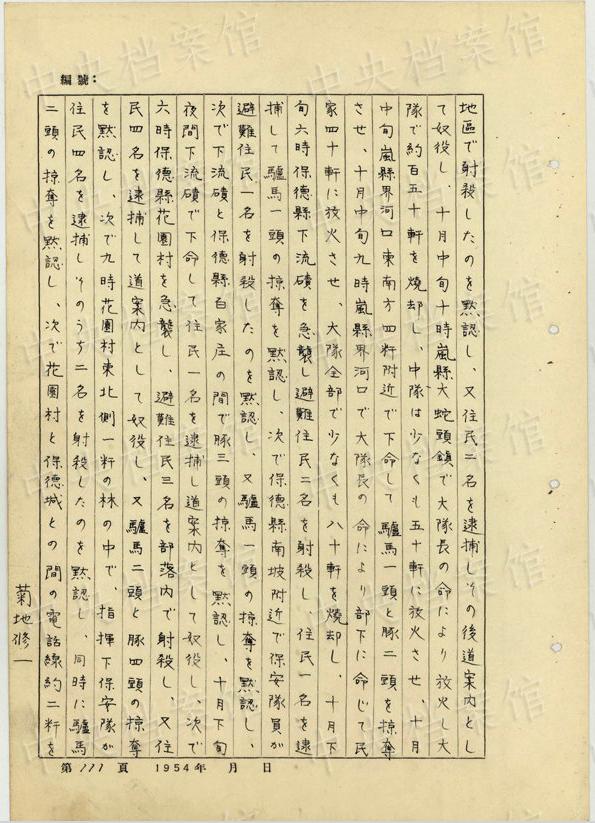 編號：
地區で射殺したのを黙認し、又住民二名を逮捕しその後道案内とし
て奴役し、十月中旬十時嵐縣大蛇頭鎮で大隊長の命により放火し大
隊で約百五十軒を焼却し、中隊は少なくも五十軒に放火させ、十月
中旬嵐縣界河口東南方四粁附近で下命して驢馬一頭と豚二頭を掠奪
させ、十月中旬九時嵐縣界河口で大隊長の命により部下に命じて民
家四十軒に放火させ、大隊全部で少なくも八十軒を焼却し、十月下
旬六時保德縣下流磧を急襲し避難住民二名を射殺し、住民一名を逮
捕して驢馬一頭の掠奪を黙認し、次で保德縣南坡附近で保安隊員が
避難住民一名を射殺したのを黙認し、又驢馬一頭の掠奪を黙認し、
次で下流磧と保德縣白家庄の間で豚三頭の掠奪を黙認し、十月下旬
夜間下流磧で下命して住民一名を逮捕し道案内として奴役し、次で
六時保德縣花園村を急襲し、避難住民三名を部落内で射殺し、又住
民四名を逮捕して道案内として奴役し、又驢馬二頭と豚四頭の掠奪
を黙認し、次で九時花園村東北側一粁の林の中で、指揮下保安隊が
住民四名を逮捕しそのうち二名を射殺したのを黙認し、同時に驢馬
二頭の掠奪を黙認し、次で花園村と保德城との間の電話線約二粁を
菊地修一
第111頁 1954年 月 日
中央档案馆
中央档案馆
中央档案馆
中央档案馆
中央档案馆
中央档案馆